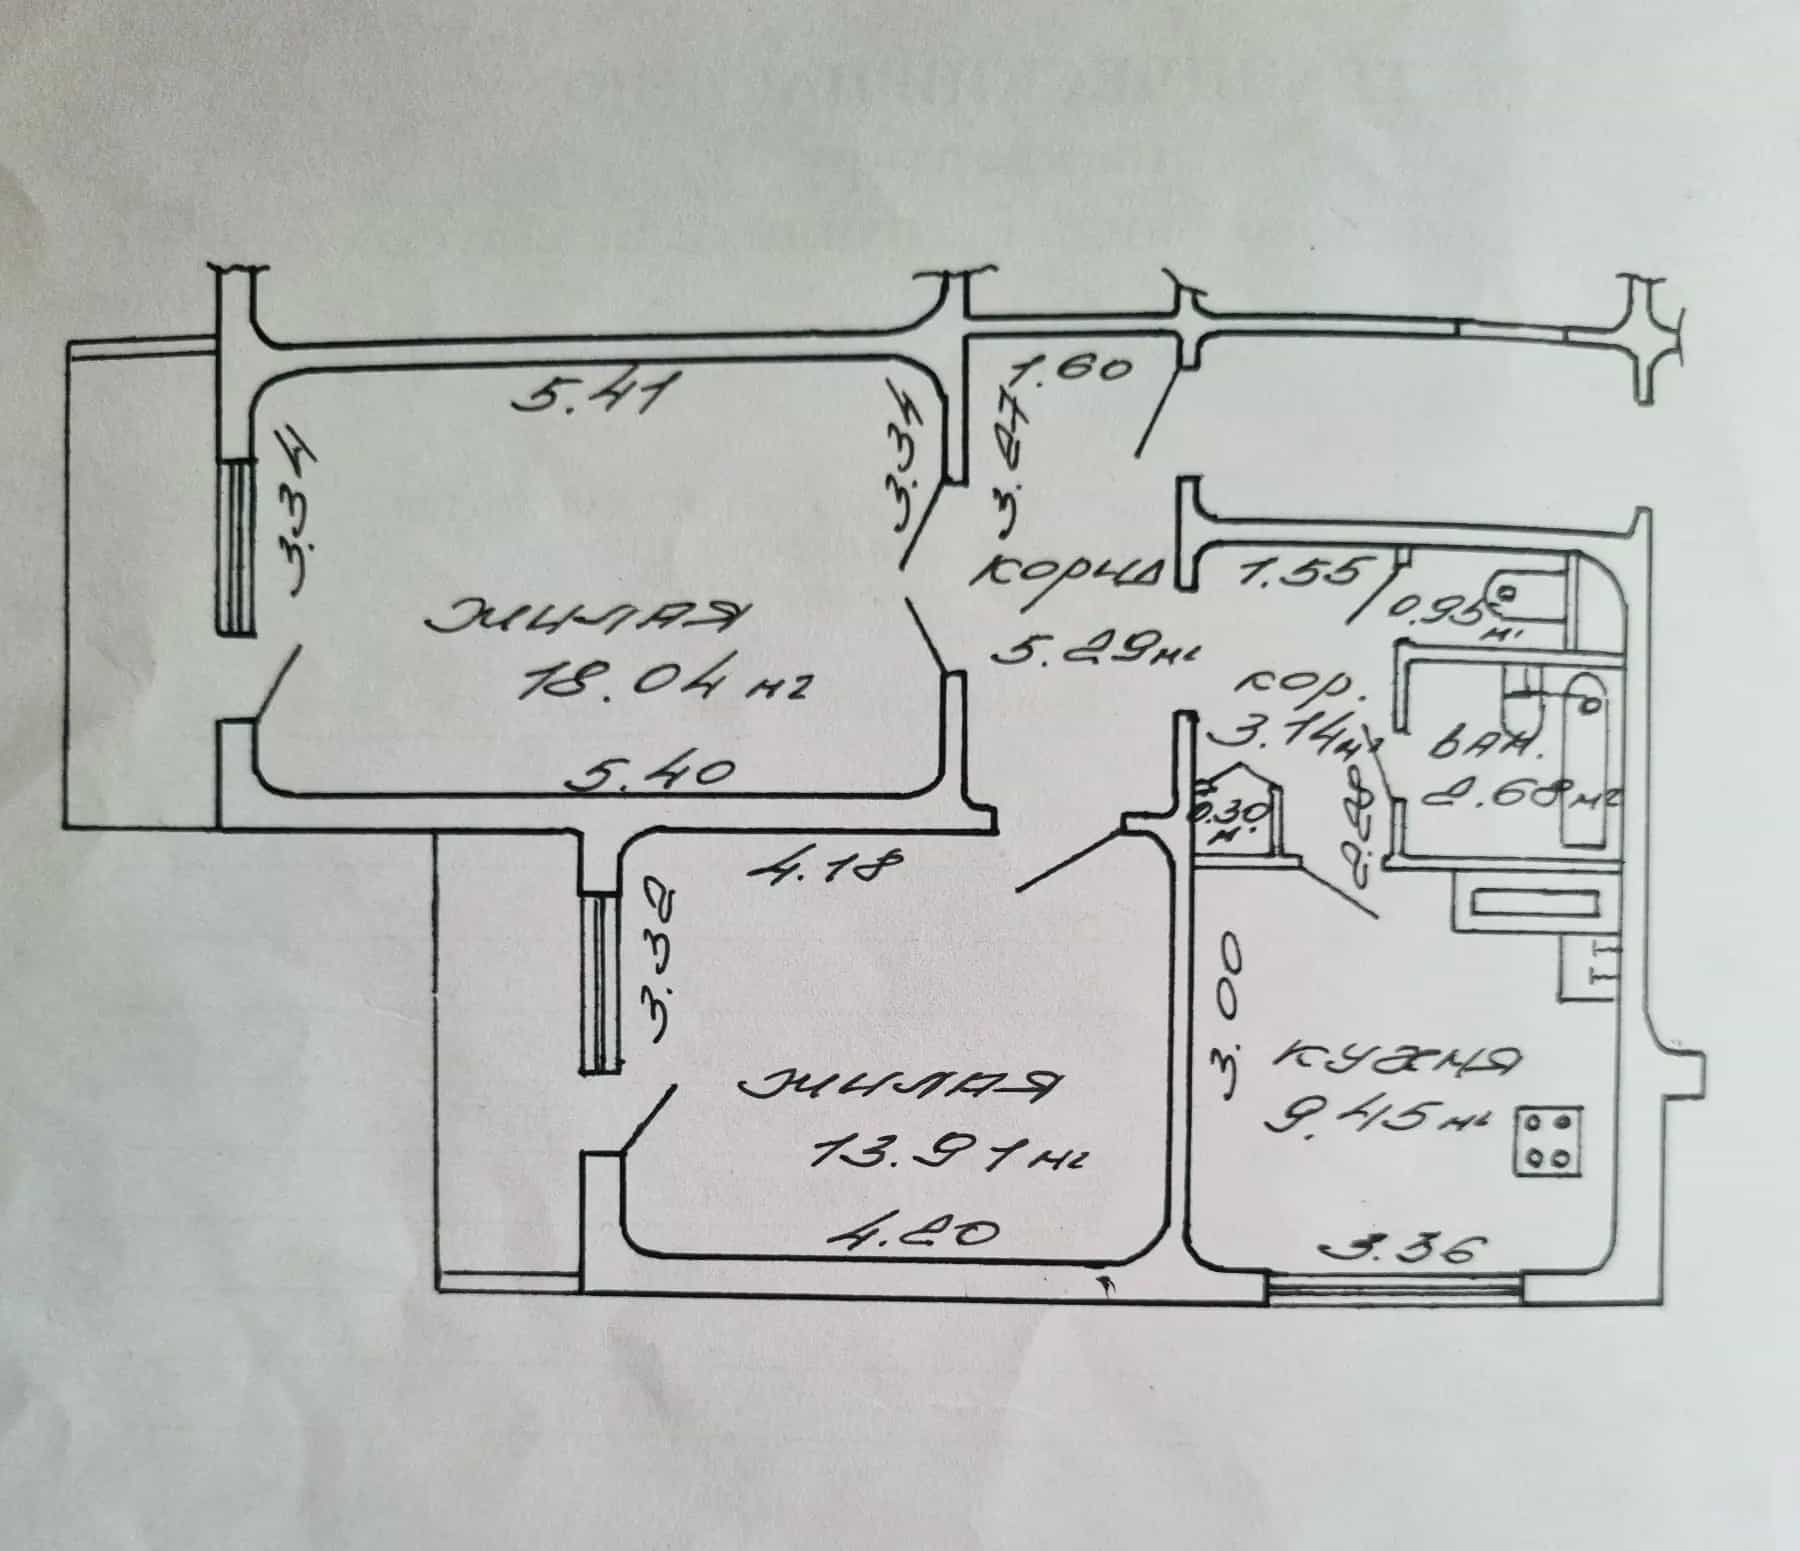 5.41
3.34
3.34
жилая
18.04 м2
5.40
1.60
3.27
корид
5.29 м2
1.55
0.95
м.
кор.
3.14 м2
2.28
0.30
м.
ван.
2.68 м2
4.18
3.32
жилая
13.91 м2
4.20
3.00
кухня
9.45 м2
3.36